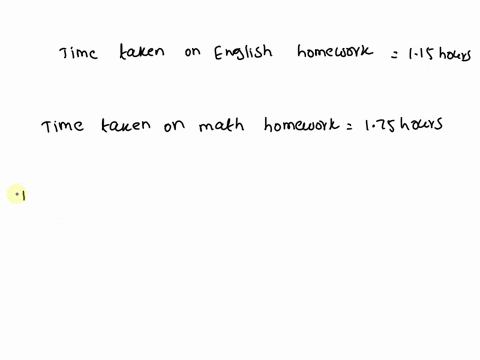 Time taken on English homework = 1.15 hours
Time taken on math homework = 1.75 hours